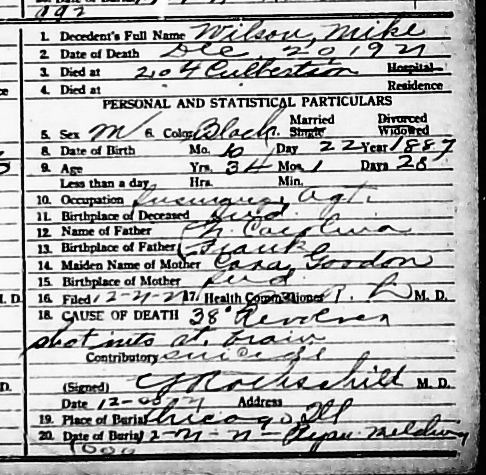 192
1. Decedent's Full Name Wilson, Mike
2. Date of Death Dec. 20 1921
3. Died at 204 Culbertson Hospital
4. Died at Residence
PERSONAL AND STATISTICAL PARTICULARS
Married Divorced
5. Sex M 6. Color Black 7. Single Widowed
8. Date of Birth Mo. 10 Day 22 Year 1887
9. Age Yrs. 34 Mos. 1 Days 28
Less than a day Hrs. Min.
10. Occupation Insurance Agt.
11. Birthplace of Deceased Ind.
12. Name of Father
13. Birthplace of Father N. Carolina Frank
14. Maiden Name of Mother Cora Goodon
15. Birthplace of Mother Ind
16. Filed 12-21-21 17. Health Commissioner M. D.
18. CAUSE OF DEATH 38 Revolver
shot into at. brain
Contributory suicide
(Signed) M. D.
Date 12- Address
19. Place of Burial Chicago Ill
20. Date of Burial
M. D.
D.